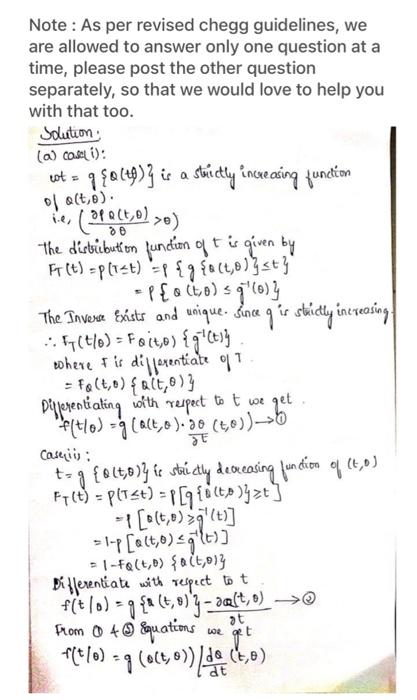 Note : As per revised chegg guidelines, we
are allowed to answer only one question at a
time, please post the other question
separately, so that we would love to help you
with that too.
Solution:
(a) case(i):
wt = g{Q(tθ)} is a strictly increasing function
of Q(t,θ).
i.e, (∂g Q(t,θ)/∂θ >0)
The distribution function of t is given by
F_T(t) = P(T≤t) = P{g{Q(t,θ)}≤t}
= P{Q(t,θ) ≤ g⁻¹(θ)}
The Inverse Exists and unique. Since g is strictly increasing.
∴ F_T(t/θ) = F_Q(t,θ) {g⁻¹(t)}
where F is differentiate of T.
= F_Q(t,θ) {Q(t,θ)}
Differentiating with respect to t we get.
f(t/θ) = g(Q(t,θ)·∂Q/∂t (t,θ)) → ①
Case(ii):
t = g{Q(t,θ)} is strictly decreasing function of (t,θ)
F_T(t) = P(T≤t) = P[g{Q(t,θ)}≥t]
= P[Q(t,θ) ≥ g⁻¹(t)]
= 1-P[Q(t,θ) ≤ g⁻¹(t)]
= 1-F_Q(t,θ) {Q(t,θ)}
Differentiate with respect to t
f(t/θ) = g{Q(t,θ)} -∂Q(t,θ)/∂t → ②
From ① & ② Equations we get
f(t/θ) = g(Q(t,θ)) |dQ/dt (t,θ)